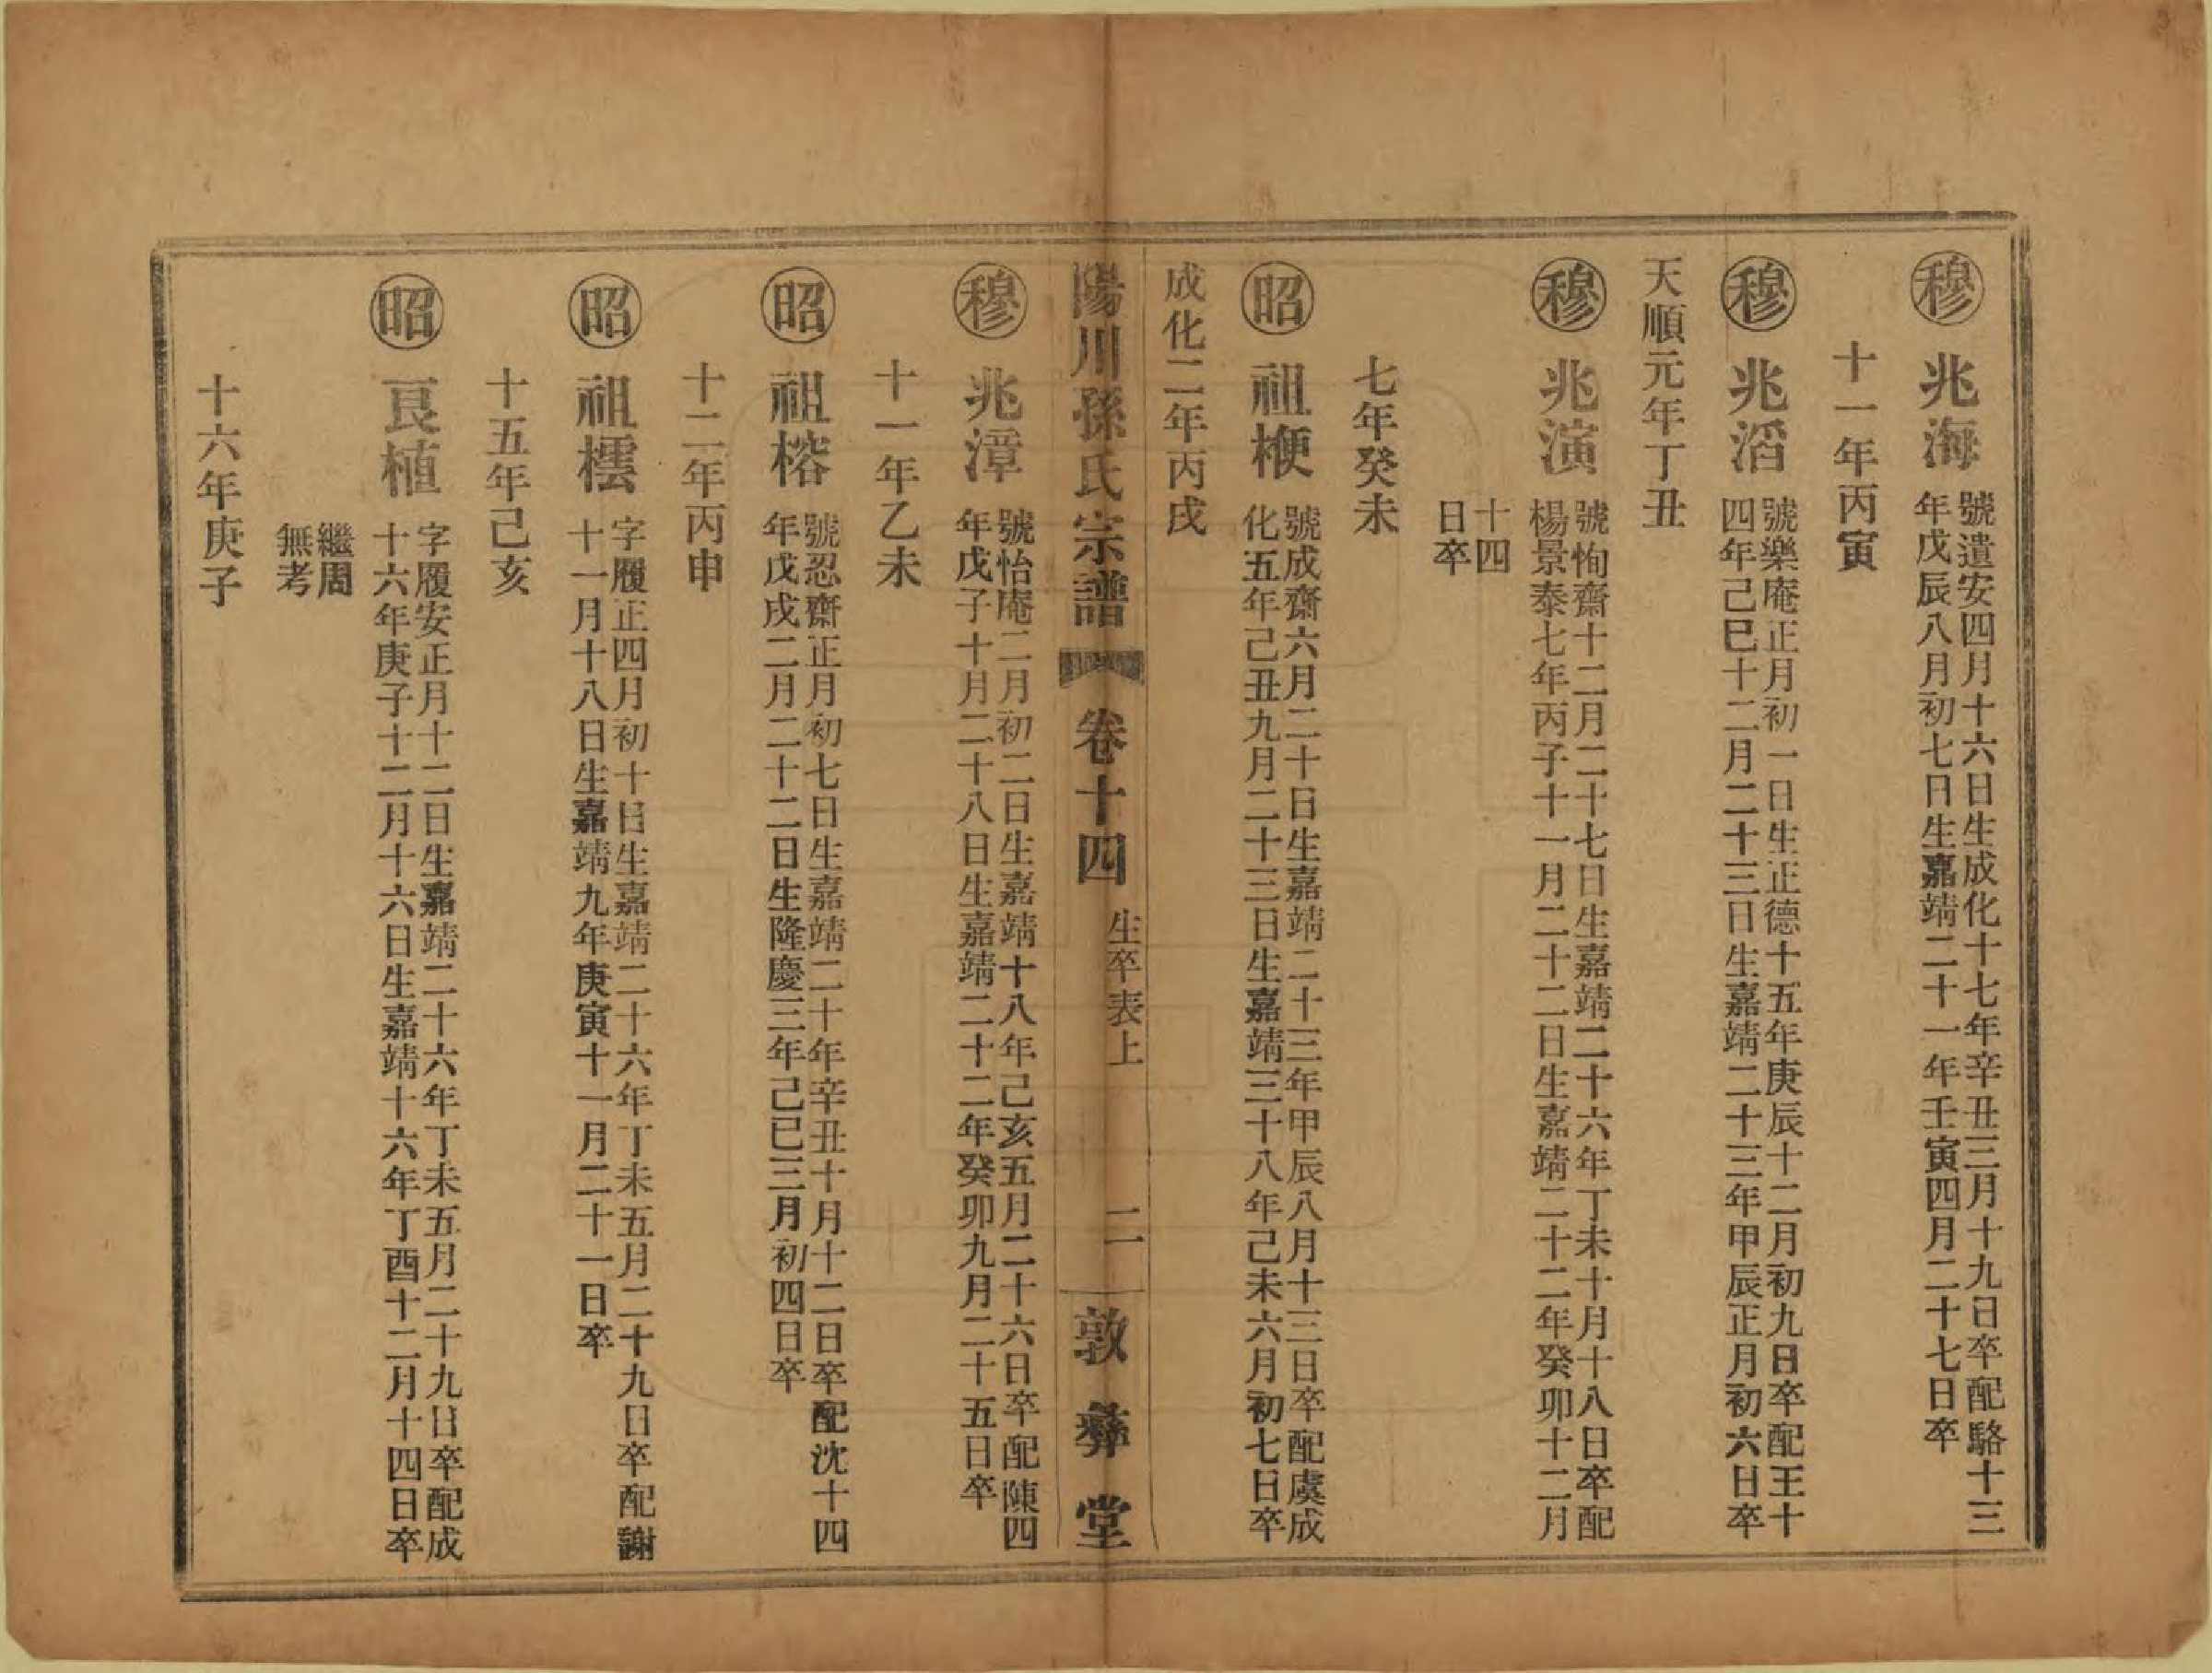 穆 兆海 號遺安四月十六日生成化十七年辛丑三月十九日卒配駱十三
年戊辰八月初七日生嘉靖二十一年壬寅四月二十七日卒
十一年丙寅
穆 兆滔 號樂庵正月初一日生正德十五年庚辰十二月初九日卒配王十
四年己巳十二月二十三日生嘉靖二十三年甲辰正月初六日卒
天順元年丁丑
穆 兆演 號恂齋十二月二十七日生嘉靖二十六年丁未十月十八日卒配
楊景泰七年丙子十一月二十二日生嘉靖二十二年癸卯十二月
十四
日卒
七年癸未
昭 祖楩 號成齋六月二十日生嘉靖二十三年甲辰八月十三日卒配虞成
化五年己丑九月二十三日生嘉靖三十八年己未六月初七日卒
成化二年丙戌
陽川孫氏宗譜 卷十四 生卒表上 二 敦彝堂
穆 兆漳 號怡庵二月初二日生嘉靖十八年己亥五月二十六日卒配陳四
年戊子十月二十八日生嘉靖二十二年癸卯九月二十五日卒
十一年乙未
昭 祖榕 號忍齋正月初七日生嘉靖二十年辛丑十月十二日卒配沈十四
年戊戌二月二十二日生隆慶三年己巳三月初四日卒
十二年丙申
昭 祖橒 字履正四月初十日生嘉靖二十六年丁未五月二十九日卒配謝
十一月十八日生嘉靖九年庚寅十一月二十一日卒
十五年己亥
昭 良植 字履安正月十二日生嘉靖二十六年丁未五月二十九日卒配成
十六年庚子十二月十六日生嘉靖十六年丁酉十二月十四日卒
繼周
無考
十六年庚子